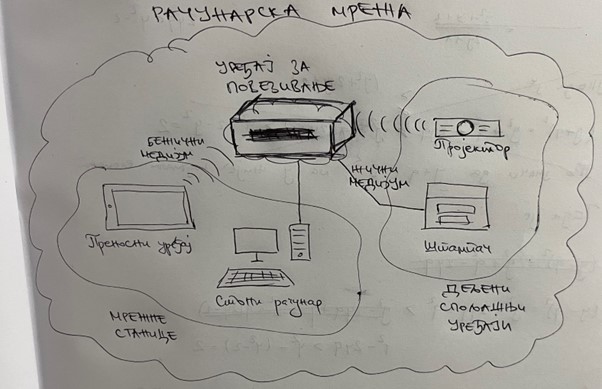 РАЧУНАРСКА МРЕЖА
УРЕЂАЈ ЗА
ПОВЕЗИВАЊЕ
БЕЖИЧНИ
МЕДИЈУМ
Пројектор
ЖИЧНИ
МЕДИЈУМ
Преносни уређај
Штампач
Стони рачунар
МРЕЖНЕ
СТАНИЦЕ
ДЕЉЕНИ
СПОЉАШЊИ
УРЕЂАЈИ